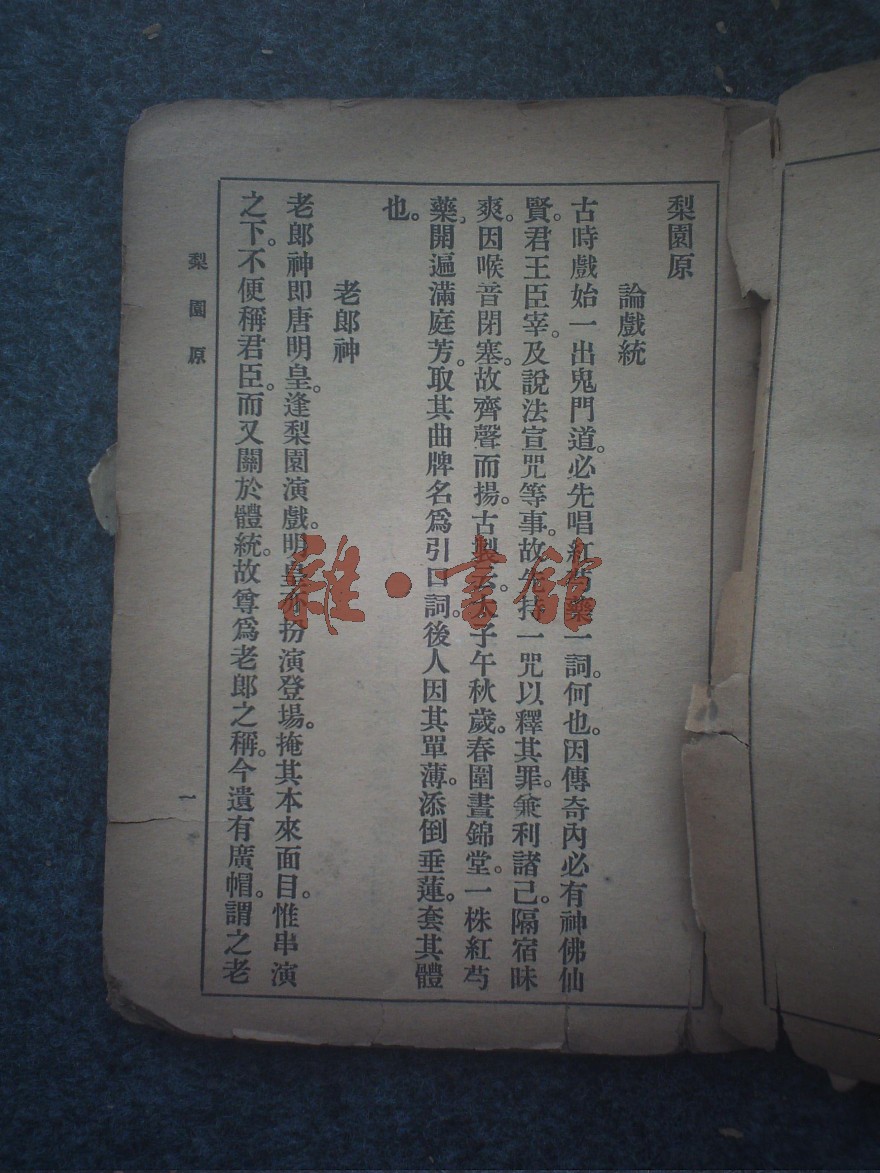 梨園原
論戲統
古時戲始一出鬼門道。必先唱紅芍藥一詞。何也。因傳奇內必有神佛仙
賢。君王臣宰。及說法宣咒等事。故先持一咒以釋其罪。兼利諸己。隔宿昧
爽。因喉音閉塞。故齊聲而揚。古製云。子午秋歲。春圍晝錦堂。一株紅芍
藥。開遍滿庭芳。取其曲牌名爲引口詞。後人因其單薄。添倒垂蓮。套其體
也。
老郎神
老郎神即唐明皇。逢梨園演戲。明皇亦扮演登場。掩其本來面目。惟串演
之下。不便稱君臣。而又關於體統。故尊爲老郎之稱。今遺有廣帽。謂之老
梨園原
一
雜·書館